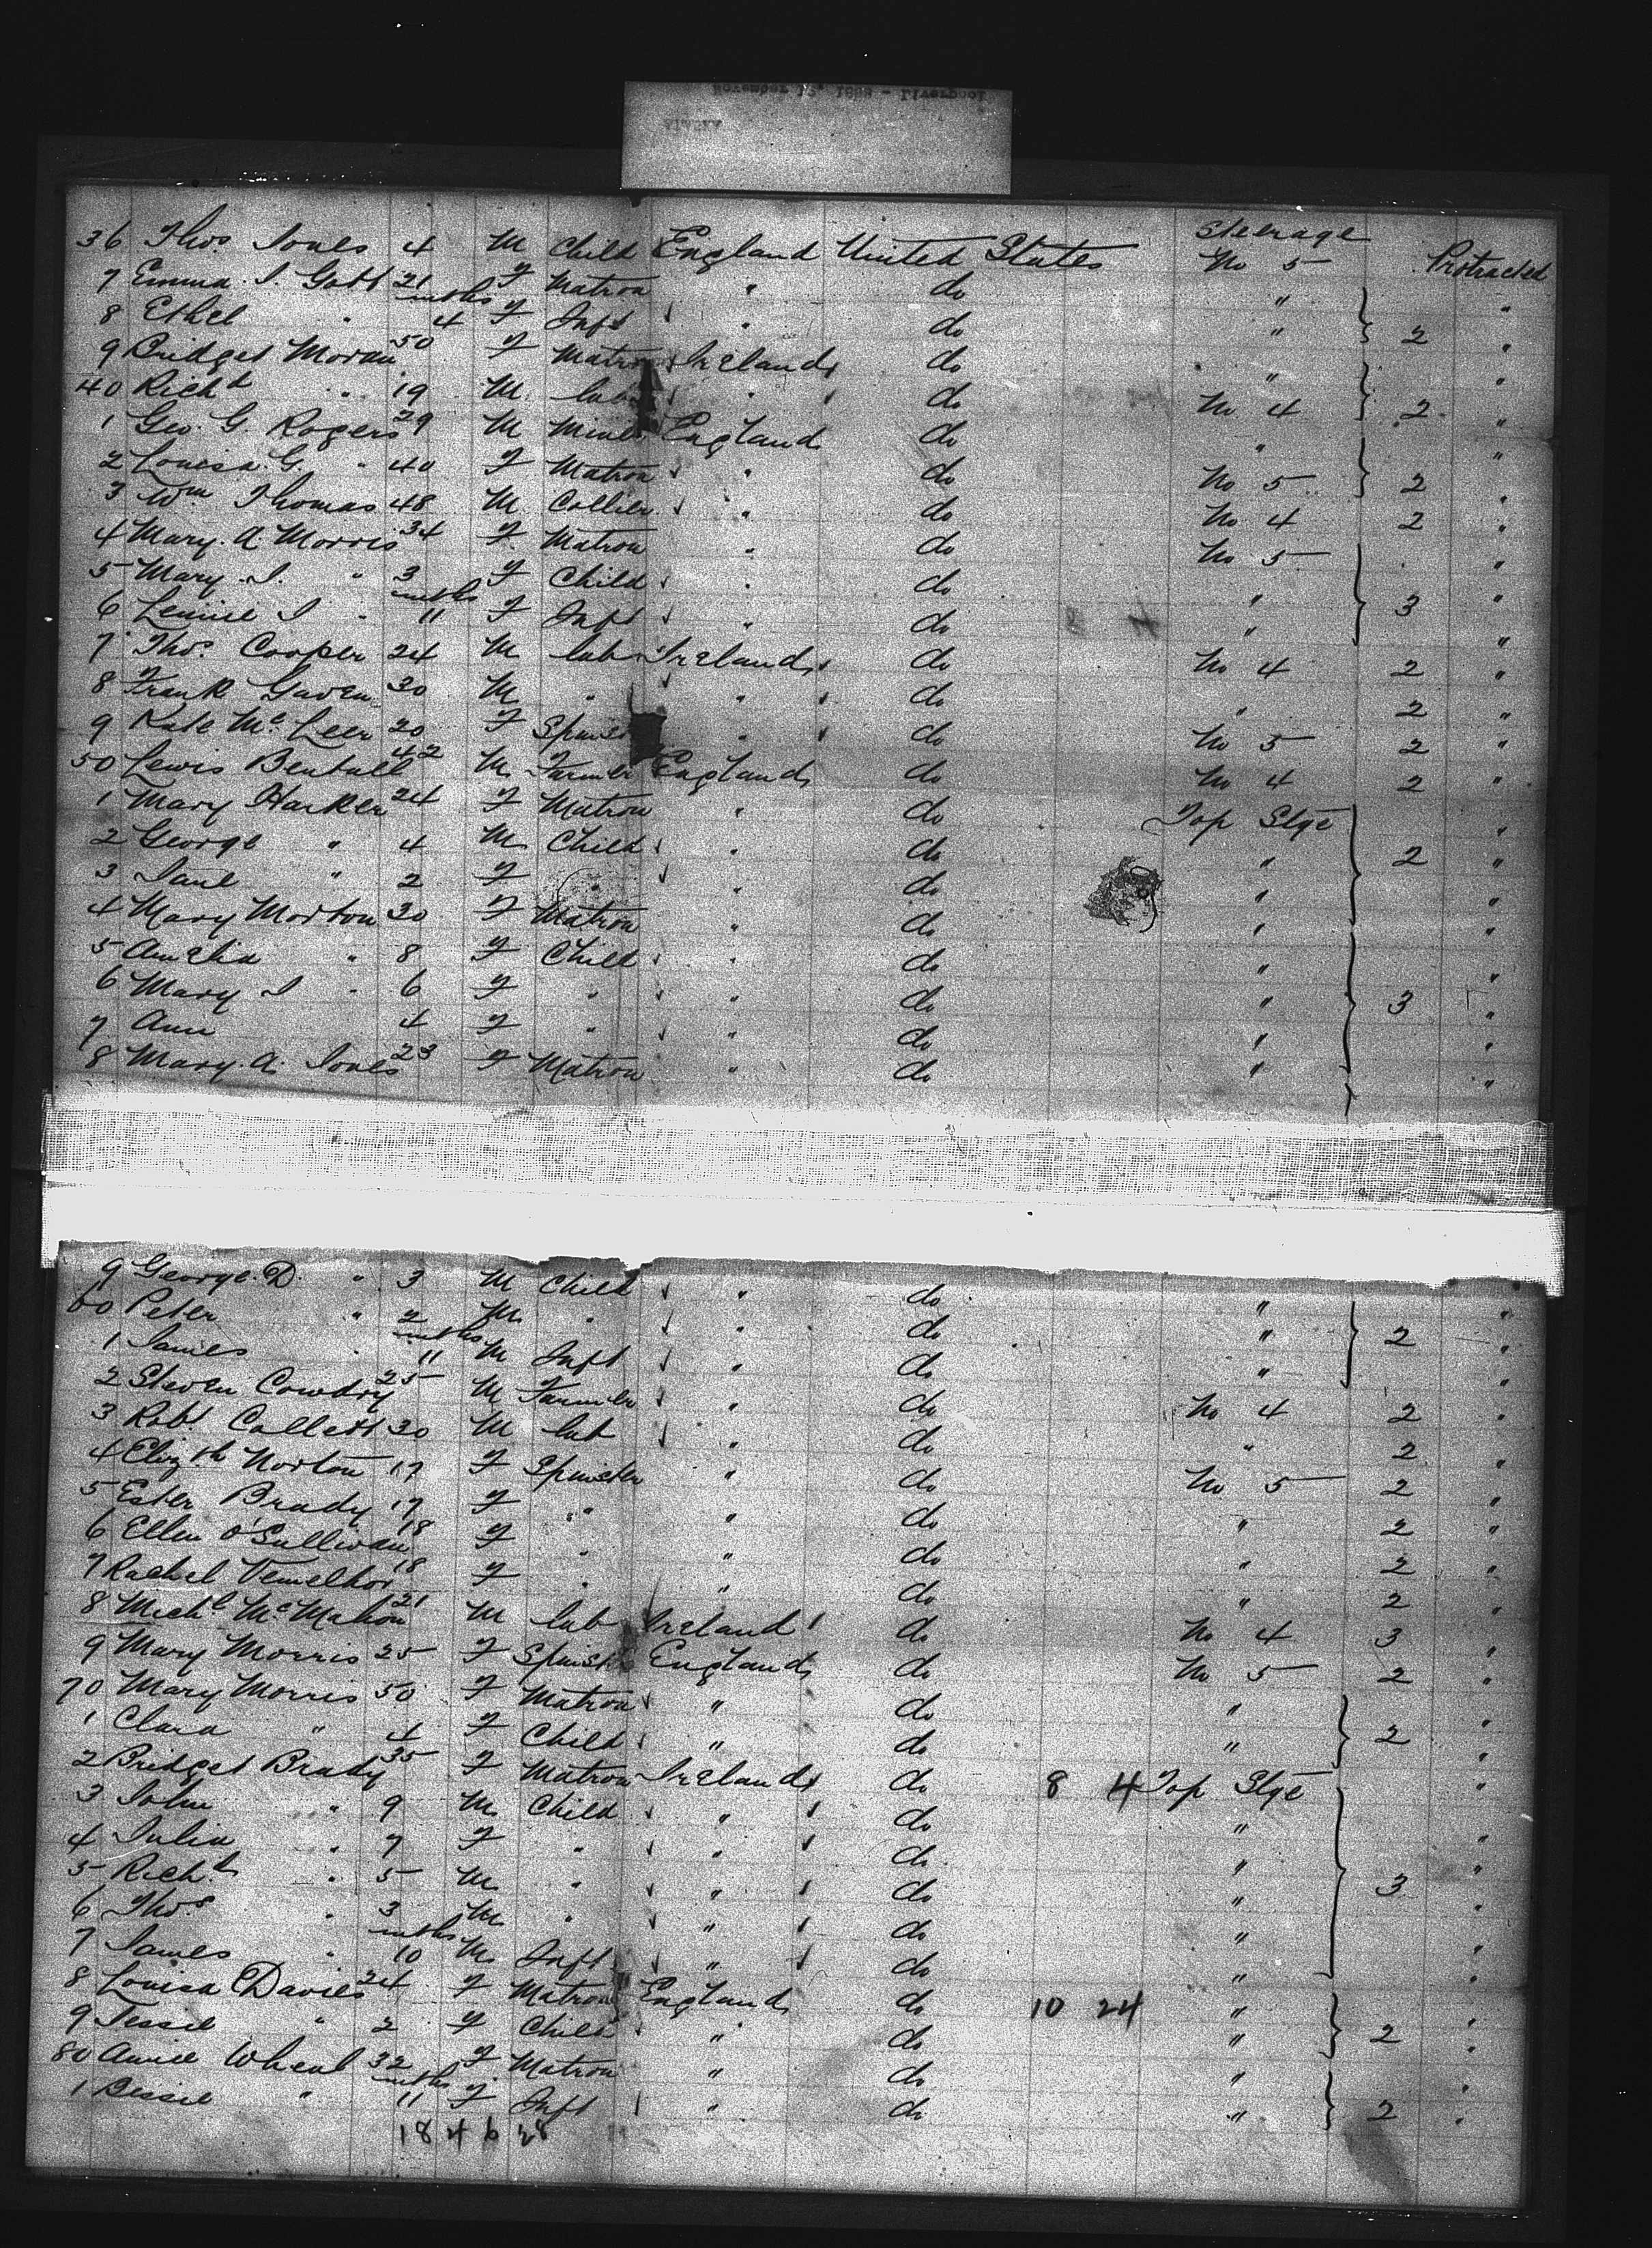 November 12, 1888 - Liverpool
ALASKA
Steerage
36 Thos Jones 4 M Child England United States No 5 Protracted
7 Emma J. Gott 21 F Matron " do " "
8 Ethel " mths 4 F Inft " do " 2 "
9 Bridget Moran 50 F Matron Ireland do " "
40 Richd " 19 M lab " do No 4 2 "
1 Geo. G. Rogers 29 M Miner England do " "
2 Louisa G. " 40 F Matron " do No 5 2 "
3 Wm Thomas 48 M Collier " do No 4 2 "
4 Mary. A Morris 34 F Matron " do No 5 "
5 Mary. J. " 3 F Child " do " 3 "
6 J " mths 11 F Inft " do " "
7 Thos. Cooper 24 M lab Ireland do No 4 2 "
8 Frank Gaven 30 M " " do " 2 "
9 Kate Mc Leer 20 F Spinster " do No 5 2 "
50 Lewis Bentall 42 M Farmer England do No 4 2 "
1 Mary Harker 24 F Matron " do Top Stge "
2 George " 4 M Child " do " 2 "
3 Jane " 2 F " do " "
4 Mary Morton 30 F Matron " do " "
5 Amelia " 8 F Child " do " "
6 Mary J " 6 F " " do " 3 "
7 Ann 4 F " " do " "
8 Mary. A. Jones 23 F Matron " do " "
9 George. D. " 3 M Child " do " "
60 Peter " 2 M " " do " 2 "
1 James " mths 11 M Inft " do " "
2 Steven Cowdry 25 M Farmer " do No 4 2 "
3 Robt Collett 30 M lab " do " 2 "
4 Elizth Norton 17 F Spinster " do No 5 2 "
5 Ester Brady 17 F " " do " 2 "
6 Ellen O'Sullivan 18 F " " do " 2 "
7 Rachel 18 F " " do " 2 "
8 Michl McMahon 21 M lab Ireland do No 4 3 "
9 Mary Morris 25 F Spinster England do No 5 2 "
70 Mary Morris 50 F Matron " do " "
1 Clara " 4 F Child " do " 2 "
2 Bridget Brady 35 F Matron Ireland do 8 4 Top Stge "
3 John " 9 M Child " do " "
4 Julia " 7 F " " do " "
5 Richd " 5 M " " do " 3 "
6 Thos " 3 M " " do " "
7 James " mths 10 M Inft " do " "
8 Louisa Davies 24 F Matron England do 10 24 " "
9 Jessie " 2 F Child " do " 2 "
80 Annie Wheal 32 F Matron " do " "
1 Bessie " mths 11 F Inft " do " 2 "
18 4 6 28